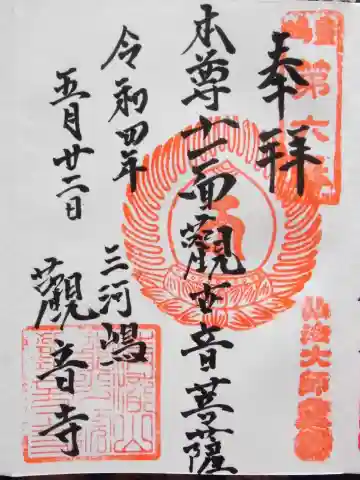 奉拝
第六
弘法大師霊場
本尊十一面觀世音菩薩
三河嶋
觀音寺
令和四年
五月廿二日